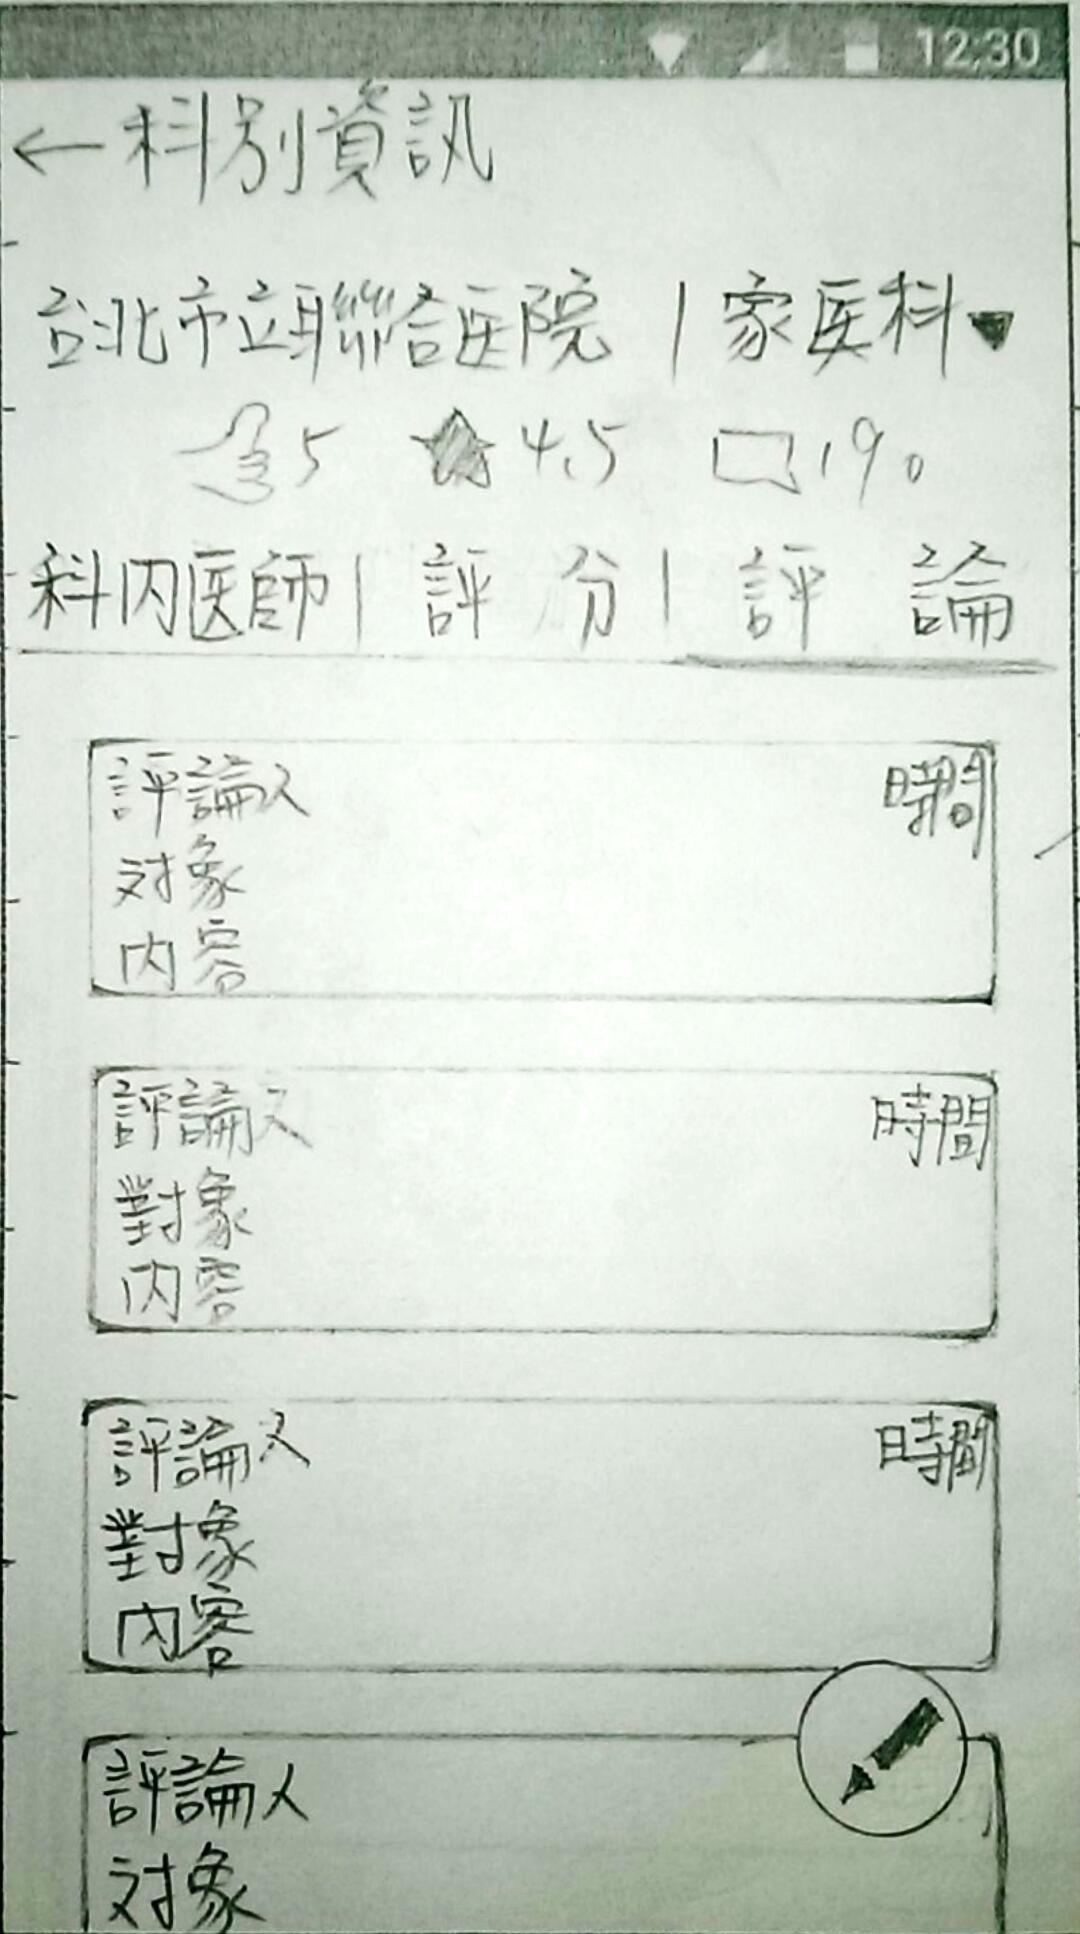 12:30
←科別資訊
台北市立聯合医院 | 家医科▼
5 4.5 190
科内医師 | 評分 | 評論
評論人 時間
対象
内容
評論人 時間
對象
内容
評論人 時間
對象
内容
評論人
対象